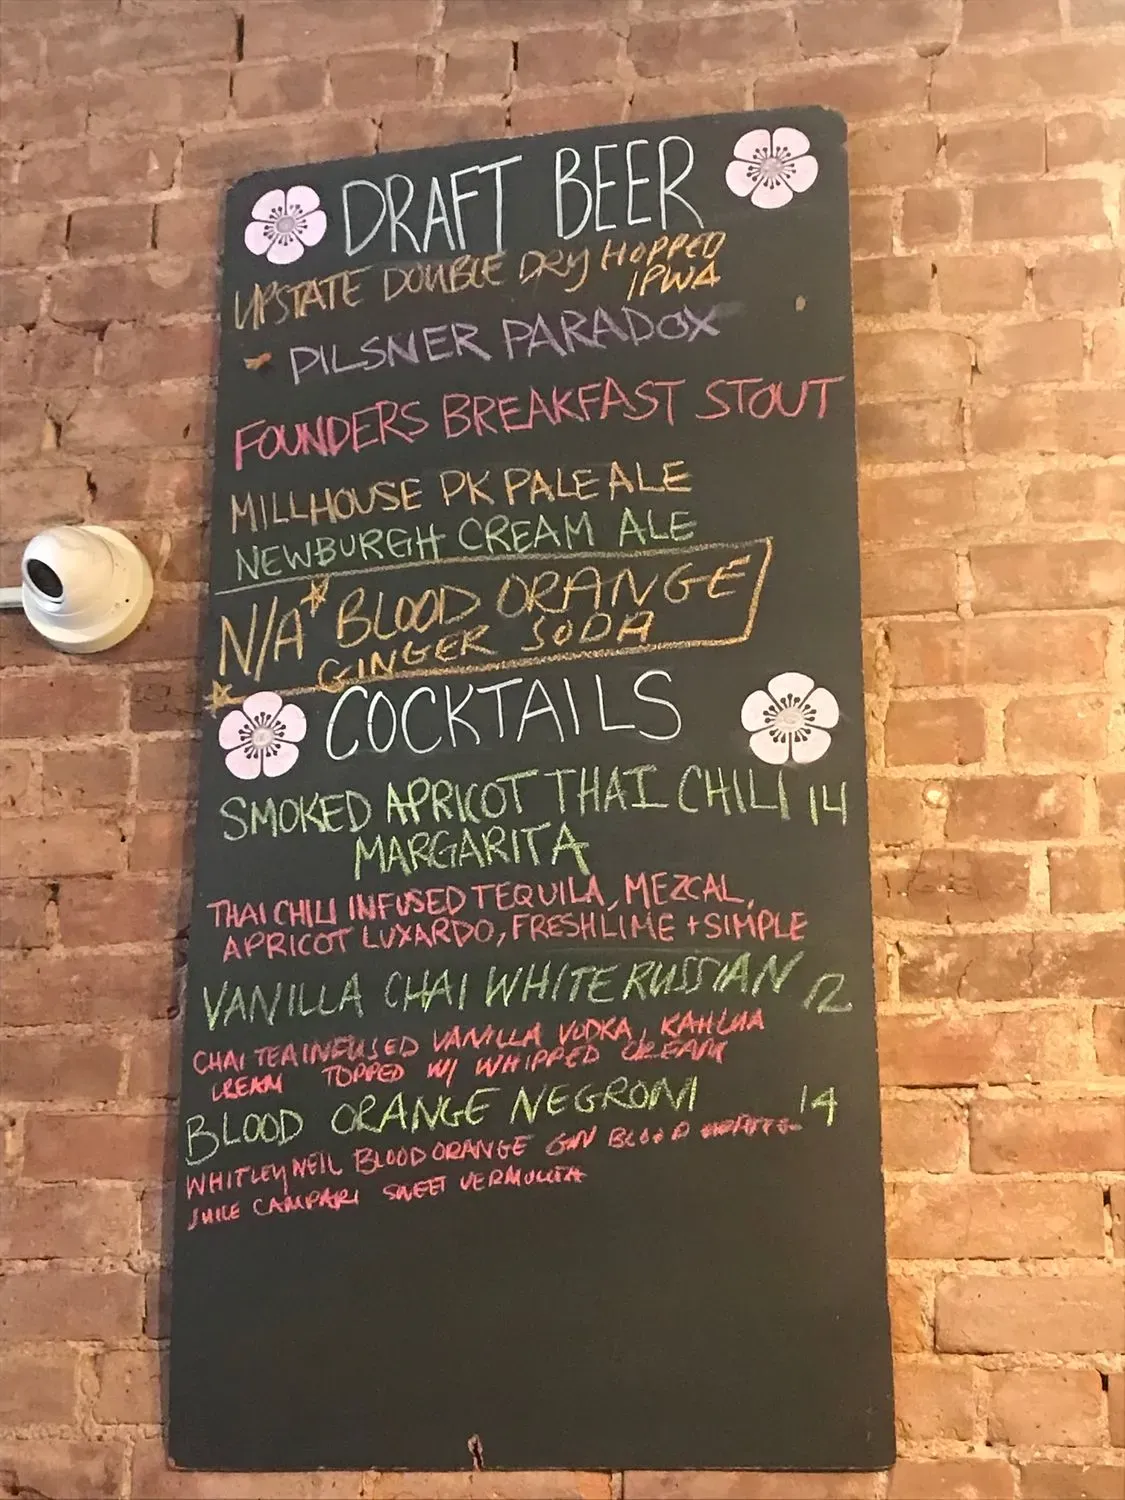 DRAFT BEER
UPSTATE DOUBLE DRY HOPPED
IPWA
PILSNER PARADOX
FOUNDERS BREAKFAST STOUT
MILLHOUSE PK PALE ALE
NEWBURGH CREAM ALE
N/A BLOOD ORANGE
GINGER SODA
COCKTAILS
SMOKED APRICOT THAI CHILI 14
MARGARITA
THAI CHILI INFUSED TEQUILA, MEZCAL,
APRICOT LUXARDO, FRESH LIME + SIMPLE
VANILLA CHAI WHITE RUSSIAN 12
CHAI TEA INFUSED VANILLA VODKA, KAHLUA
CREAM TOPPED W/ WHIPPED CREAM
BLOOD ORANGE NEGRONI 14
WHITLEY NEIL BLOOD ORANGE GIN BLOOD
JUICE CAMPARI SWEET VERMOUTH